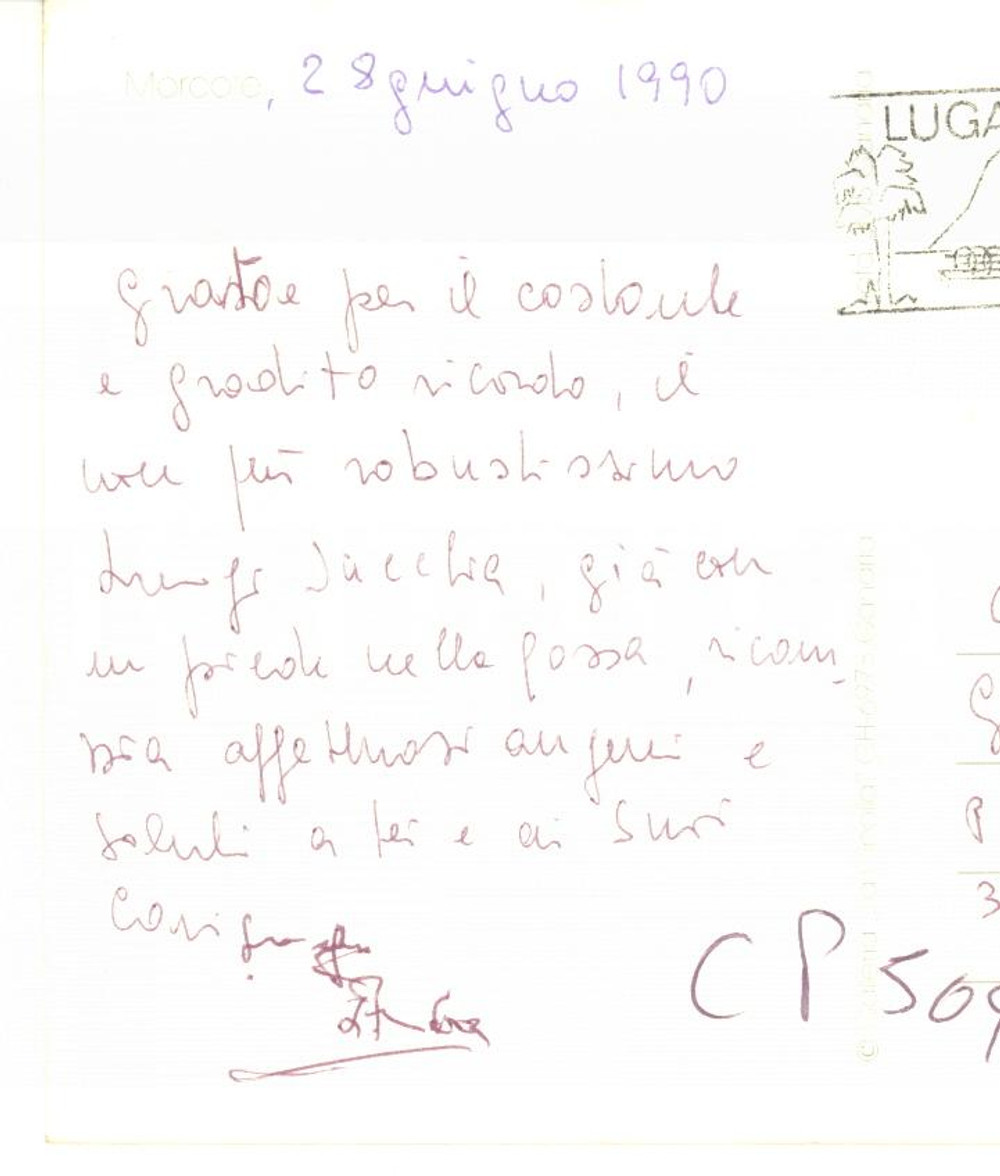 Morcote, 28 giugno 1990
LUGA
grato per il costante
e gradito ricordo, il
non più robustissimo
Luigi Sacchia, già con
un piede nella fossa, ricam-
bia affettuosi auguri e
saluti a lei e ai Suoi
cari
CP 509